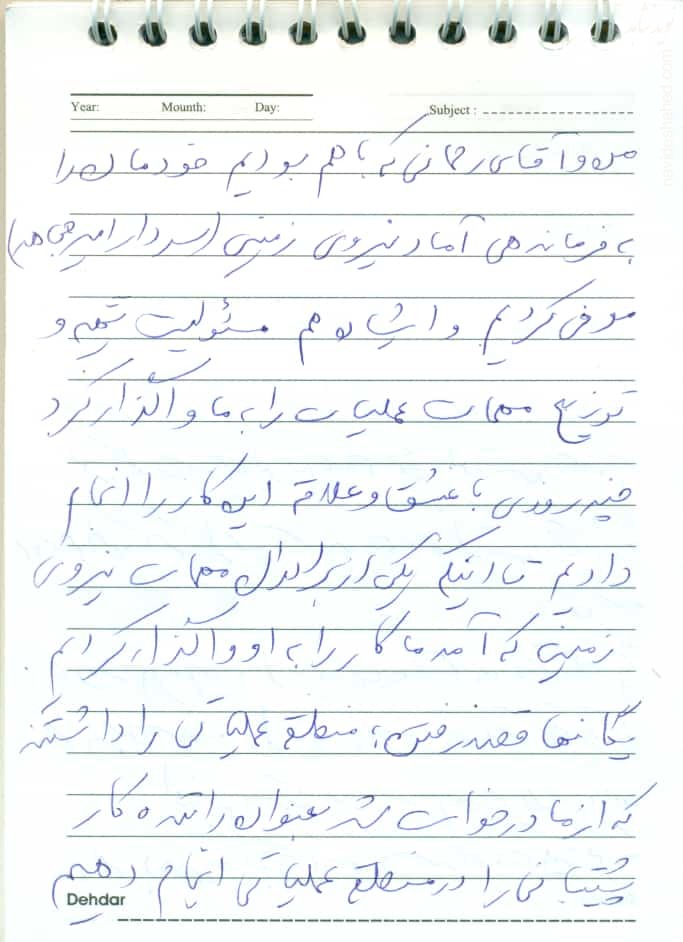 Year: Mounth: Day: Subject :
من و آقای رحمانی که با هم بودیم خودمان را
به فرماندهی آماد نیروی زمینی (سردار امیر مجاهد)
معرفی کردیم و ایشان هم مسئولیت تهیه و
توزیع مهمات عملیات را به ما واگذار کرد
چند روزی با عشق و علاقه این کار را انجام
دادیم تا اینکه یکی از برادران مهمات نیروی
زمینی که آمد ما کار را به او واگذار کردیم.
یگانها قصد رفتن به منطقه عملیاتی را داشتند
که از ما درخواست شد بعنوان راننده کار
پشتیبانی را در منطقه عملیاتی انجام دهیم
Dehdar
navideshahed.com